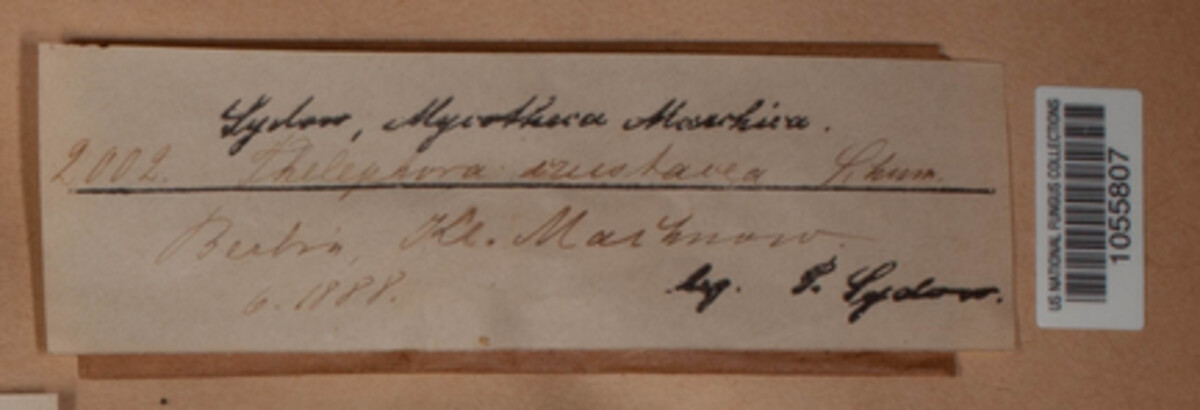 Sydow, Mycotheca Marchica.
2002. Thelephora crustacea Schum.
Berlin, Kl. Machnow.
6. 1888.
leg. P. Sydow.
US NATIONAL FUNGUS COLLECTIONS
1055807